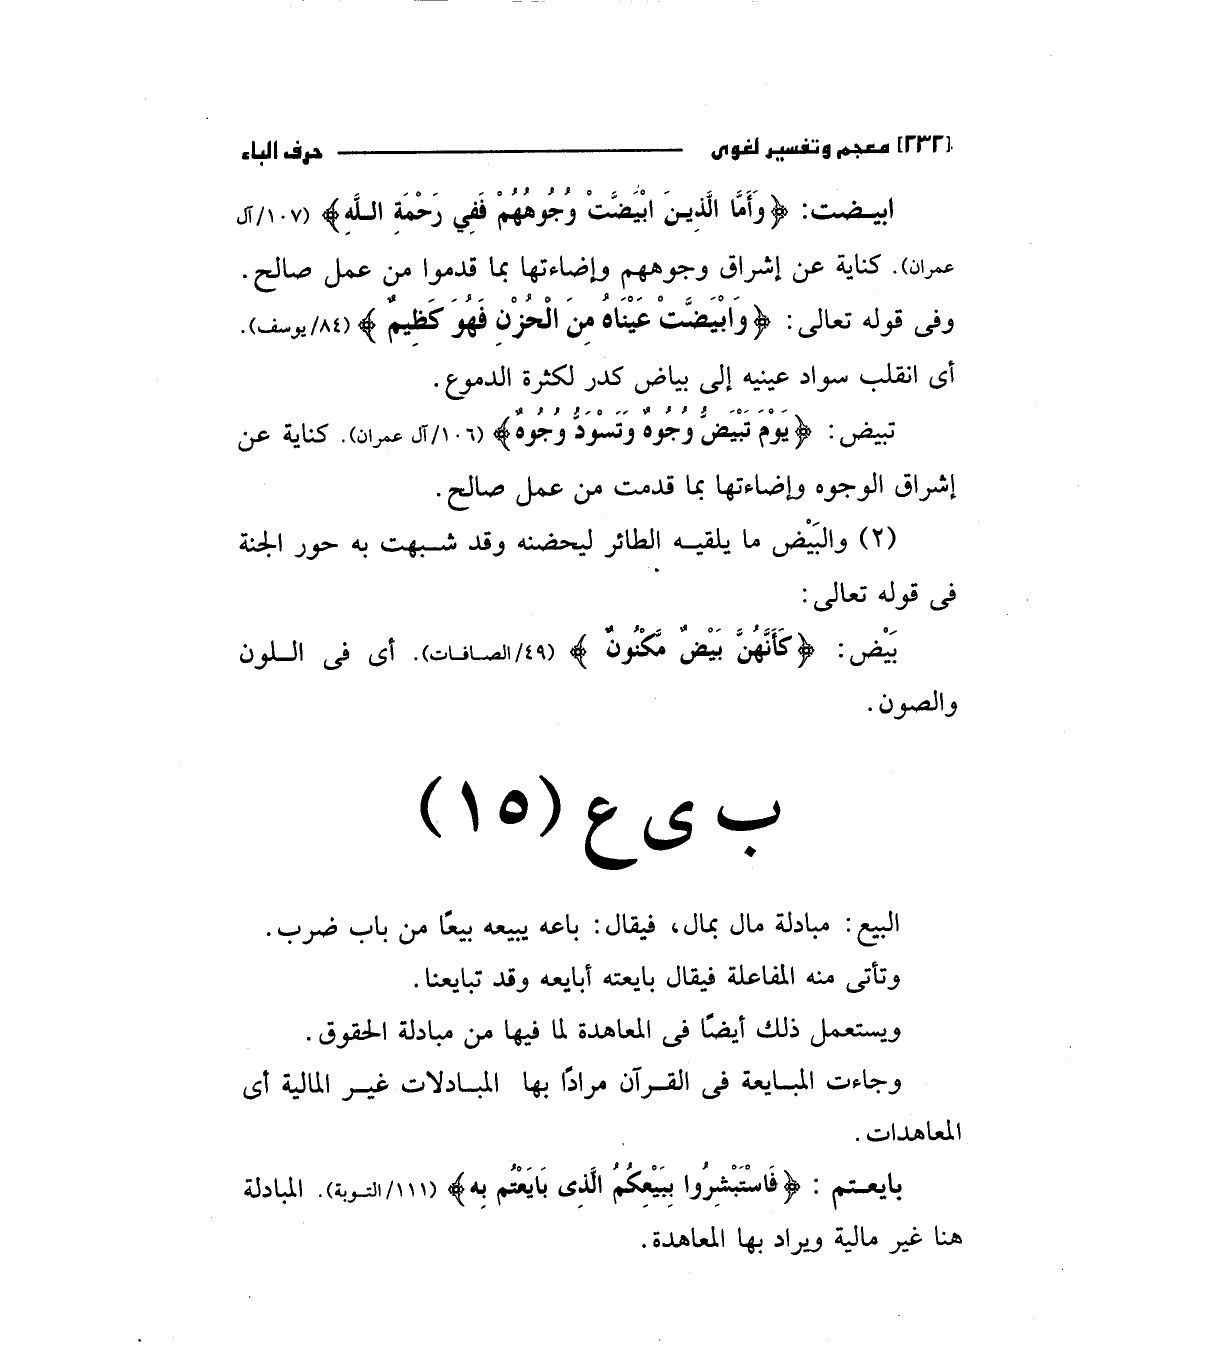 [٢٣٢] معجم وتفسير لغوى حرف الباء
ابيضت: ﴿وَأَمَّا الَّذِينَ ابْيَضَّتْ وُجُوهُهُمْ فَفِي رَحْمَةِ اللَّهِ﴾ (١٠٧/آل
عمران). كناية عن إشراق وجوههم وإضاءتها بما قدموا من عمل صالح.
وفى قوله تعالى: ﴿وَابْيَضَّتْ عَيْنَاهُ مِنَ الْحُزْنِ فَهُوَ كَظِيمٌ﴾ (٨٤/يوسف).
أى انقلب سواد عينيه إلى بياض كدر لكثرة الدموع.
تبيض: ﴿يَوْمَ تَبْيَضُّ وُجُوهٌ وَتَسْوَدُّ وُجُوهٌ﴾ (١٠٦/آل عمران). كناية عن
إشراق الوجوه وإضاءتها بما قدمت من عمل صالح.
(٢) والبَيْض ما يلقيه الطائر ليحضنه وقد شبهت به حور الجنة
فى قوله تعالى:
بَيْض: ﴿كَأَنَّهُنَّ بَيْضٌ مَّكْنُونٌ﴾ (٤٩/الصافات). أى فى اللون
والصون.
ب ى ع (١٥)
البيع: مبادلة مال بمال، فيقال: باعه يبيعه بيعًا من باب ضرب.
وتأتى منه المفاعلة فيقال بايعته أبايعه وقد تبايعنا.
ويستعمل ذلك أيضًا فى المعاهدة لما فيها من مبادلة الحقوق.
وجاءت المبايعة فى القرآن مرادًا بها المبادلات غير المالية أى
المعاهدات.
بايعتم: ﴿فَاسْتَبْشِرُوا بِبَيْعِكُمُ الَّذِى بَايَعْتُم بِهِ﴾ (١١١/التوبة). المبادلة
هنا غير مالية ويراد بها المعاهدة.